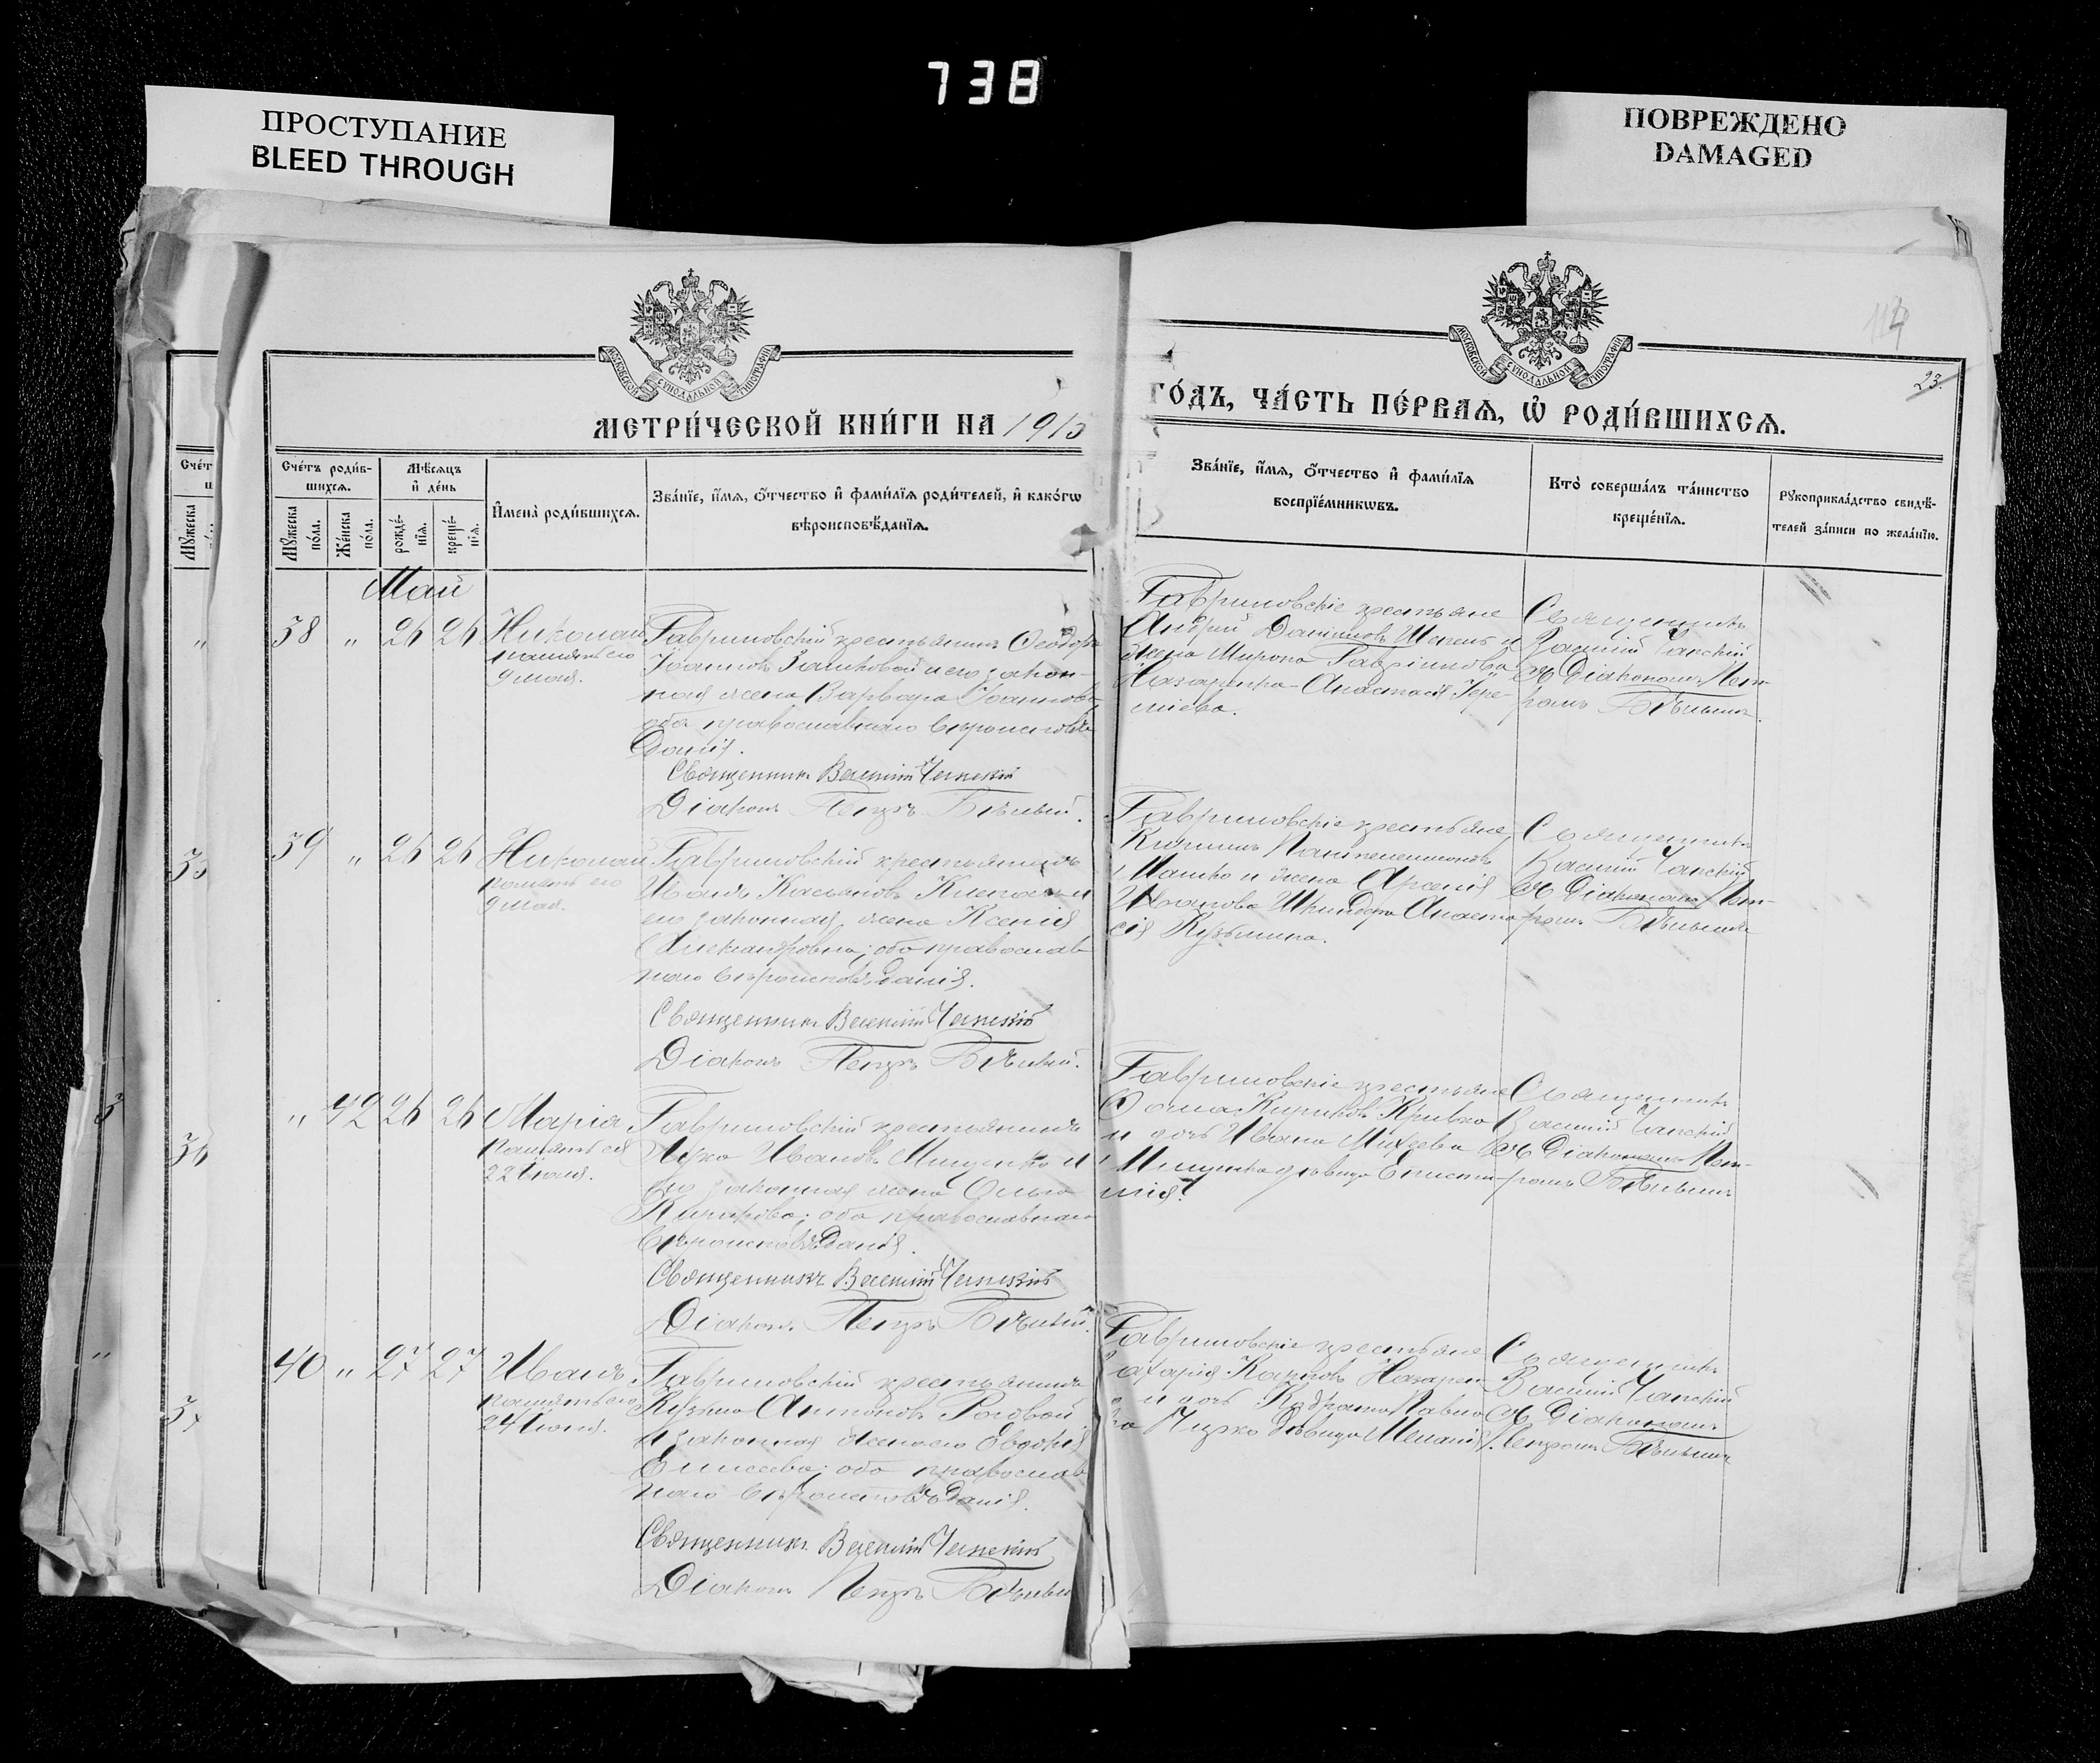 738
ПРОСТУПАНИЕ
BLEED THROUGH
ПОВРЕЖДЕНО
DAMAGED
МОСКОВСКОЙ СУНОДАЛЬНОЙ ТИПОГРАФІИ
МОСКОВСКОЙ СУНОДАЛЬНОЙ ТИПОГРАФІИ
114
23.
МЕТРИ́ЧЕСКОЙ КНИ́ГИ НА 1913
ГО́ДЪ, ЧА́СТЬ ПЕ́РВАѦ, Ѡ҆ РОДИ́ВШИХСѦ.
Сче́тъ роди́в-
шихсѧ.
Мѣ́сѧцъ
и҆ де́нь
Мꙋ́жеска
по́ла.
Же́нска
по́ла.
рожде́-
нїѧ.
креще́-
нїѧ.
И҆мена̀ роди́вшихсѧ.
Зва́нїе, и҆́мѧ, ѻ҆́тчество и҆ фами́лїѧ роди́телей, и҆ како́гѡ
вѣроисповѣ́данїѧ.
Зва́нїе, и҆́мѧ, ѻ҆́тчество и҆ фами́лїѧ
воспрїе́мникѡвъ.
Кто̀ соверша́лъ та́инство
креще́нїѧ.
Рꙋкоприкла́дство свидѣ́-
телей за́писи по жела́нїю.
Май
38 " 26 26 Николай
память его
9 мая.
Гавриловскій крестьянинъ Ѳеодоръ
Іоанновъ и его закон-
ная жена Варвара Іоаннова,
оба православнаго вѣроисповѣ-
данія.
Священникъ Василій Чапскій
Діаконъ Петръ
Гавриловскіе крестьяне
Андрей Даніиловъ и
жена Мирона Гавріилова
Назаренка Анастасія
Священникъ
Василій Чапскій
съ Діакономъ Пет-
ромъ
39 " 26 26 Николай
память его
9 мая.
Гавриловскій крестьянинъ
Иванъ Касьяновъ и
его законная жена Ксенія
Александровна; оба православ-
наго вѣроисповѣданія.
Священникъ Василій Чапскій
Діаконъ Петръ
Гавриловскіе крестьяне
Кириллъ Пантелеимоновъ
и жена Арсенія
Иванова Анаста-
сія Кузьмина.
Священникъ
Василій Чапскій
съ Діакономъ Пет-
ромъ
" 42 26 26 Марія
память ея
22 Іюля.
Гавриловскій крестьянинъ
Лука Ивановъ Мищенко и
его законная жена Ольга
оба православнаго
вѣроисповѣданія.
Священникъ Василій Чапскій
Діаконъ Петръ
Гавриловскіе крестьяне
Ѳома Кириковъ
и дочь Ивана Михеева
Мищенка дѣвица Еписти-
мія.
Священникъ
Василій Чапскій
съ Діакономъ Пет-
ромъ
40 " 27 27 Иванъ
память его
24 Іюня.
Гавриловскій крестьянинъ
Кузьма Антоновъ Роговой
и законная жена его Евдокія
Елисеева; оба православ-
наго вѣроисповѣданія.
Священникъ Василій Чапскій
Діаконъ Петръ
Гавриловскіе крестьяне
Захарія Карповъ Назарен-
и дочь Кодрата Павло-
дѣвица Меланія.
Священникъ
Василій Чапскій
съ Діакономъ
Петромъ